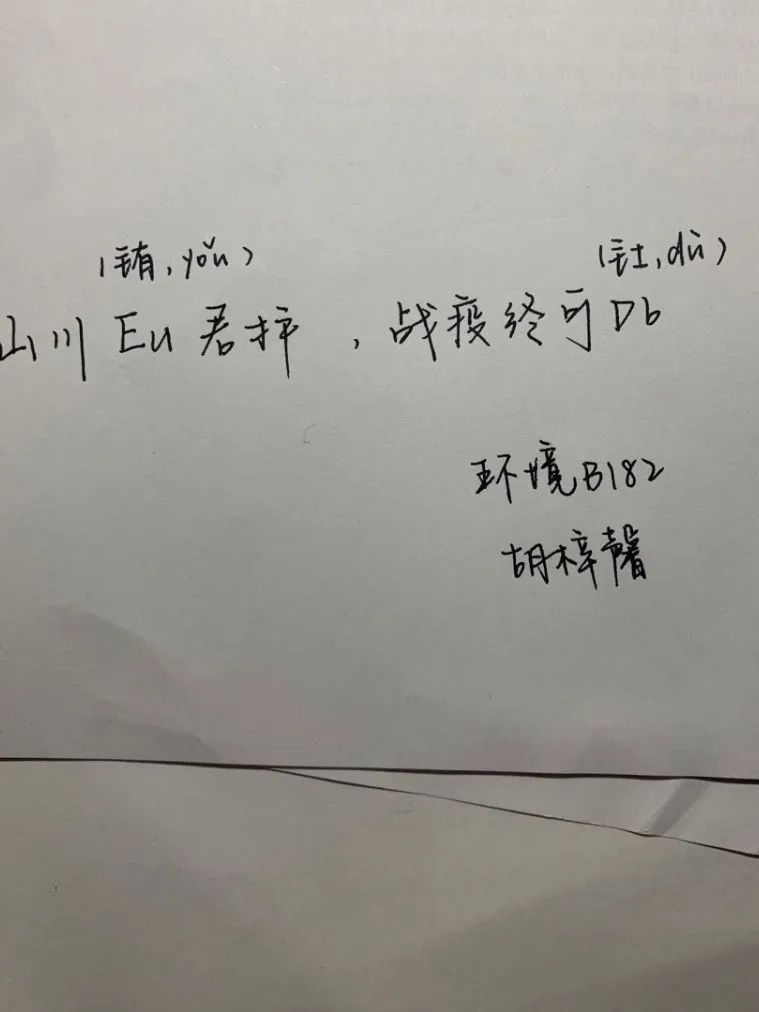 (铕,yǒu) (钍,dù)
山川Eu君护,战疫终可Db
环境B182
胡梓馨